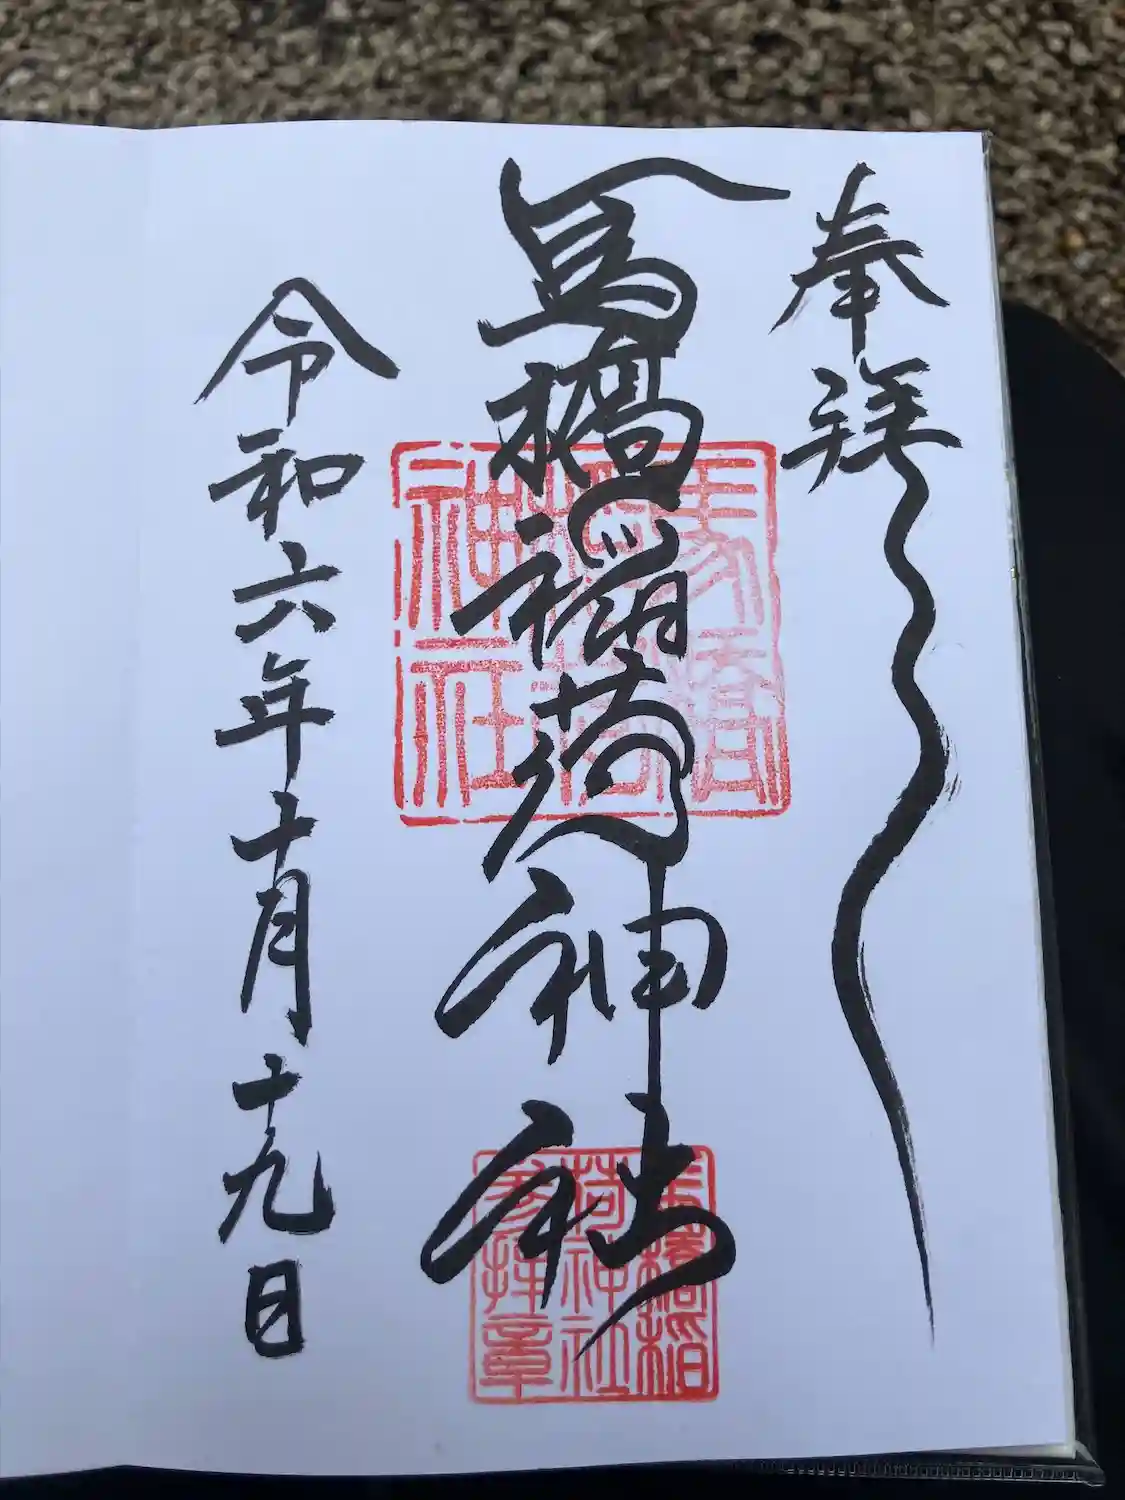 奉拝
馬橋稲荷神社
馬橋
稲荷
神社
馬橋稲
荷神社
参拝章
令和六年十月十九日